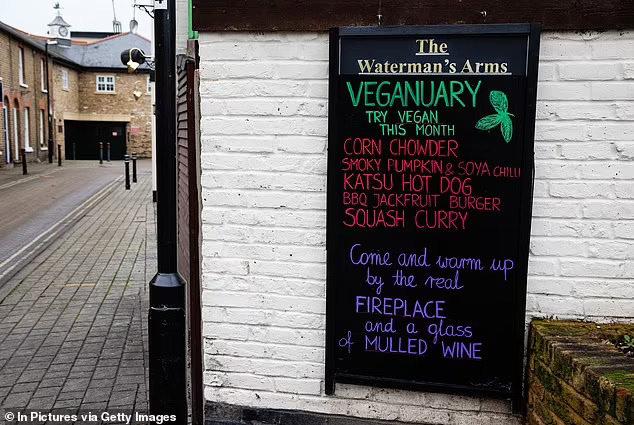 The
Waterman's Arms
VEGANUARY
TRY VEGAN
THIS MONTH
CORN CHOWDER
SMOKY PUMPKIN & SOYA CHILLI
KATSU HOT DOG
BBQ JACKFRUIT BURGER
SQUASH CURRY
Come and warm up
by the real
FIREPLACE
and a glass
of MULLED WINE
© In Pictures via Getty Images